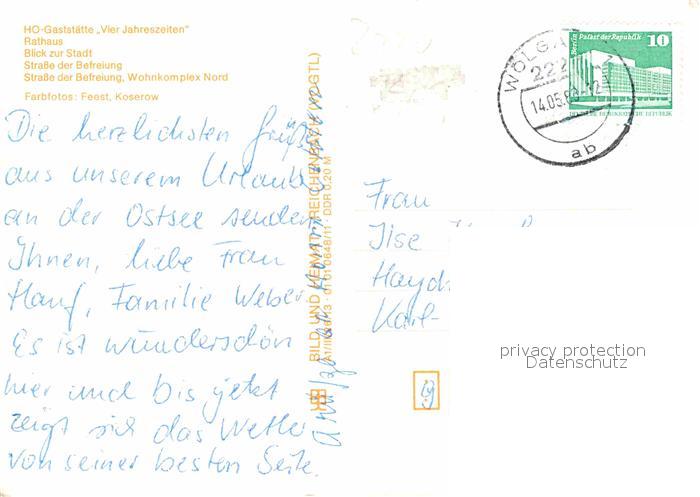 HO-Gaststätte „Vier Jahreszeiten"
Rathaus
Blick zur Stadt
Straße der Befreiung
Straße der Befreiung, Wohnkomplex Nord
Farbfotos: Feest, Koserow
Die herzlichsten Grüße
aus unserem Urlaub
an der Ostsee senden
Ihnen, liebe Frau
Hauf, Familie Weber.
Es ist wunderschön
hier und bis jetzt
zeigt sich das Wetter
von seiner besten Seite.
BILD UND HEIMAT REICHENBACH (VOGTL)
01 01 0648/11 · DDR 0,20 M
WOLGA
222
14.05.8
ab
Berlin Palast der Republik
10
DEUTSCHE DEMOKRATISCHE REPUBLIK
Frau
Ilse
Haydn
Karl-
privacy protection
Datenschutz